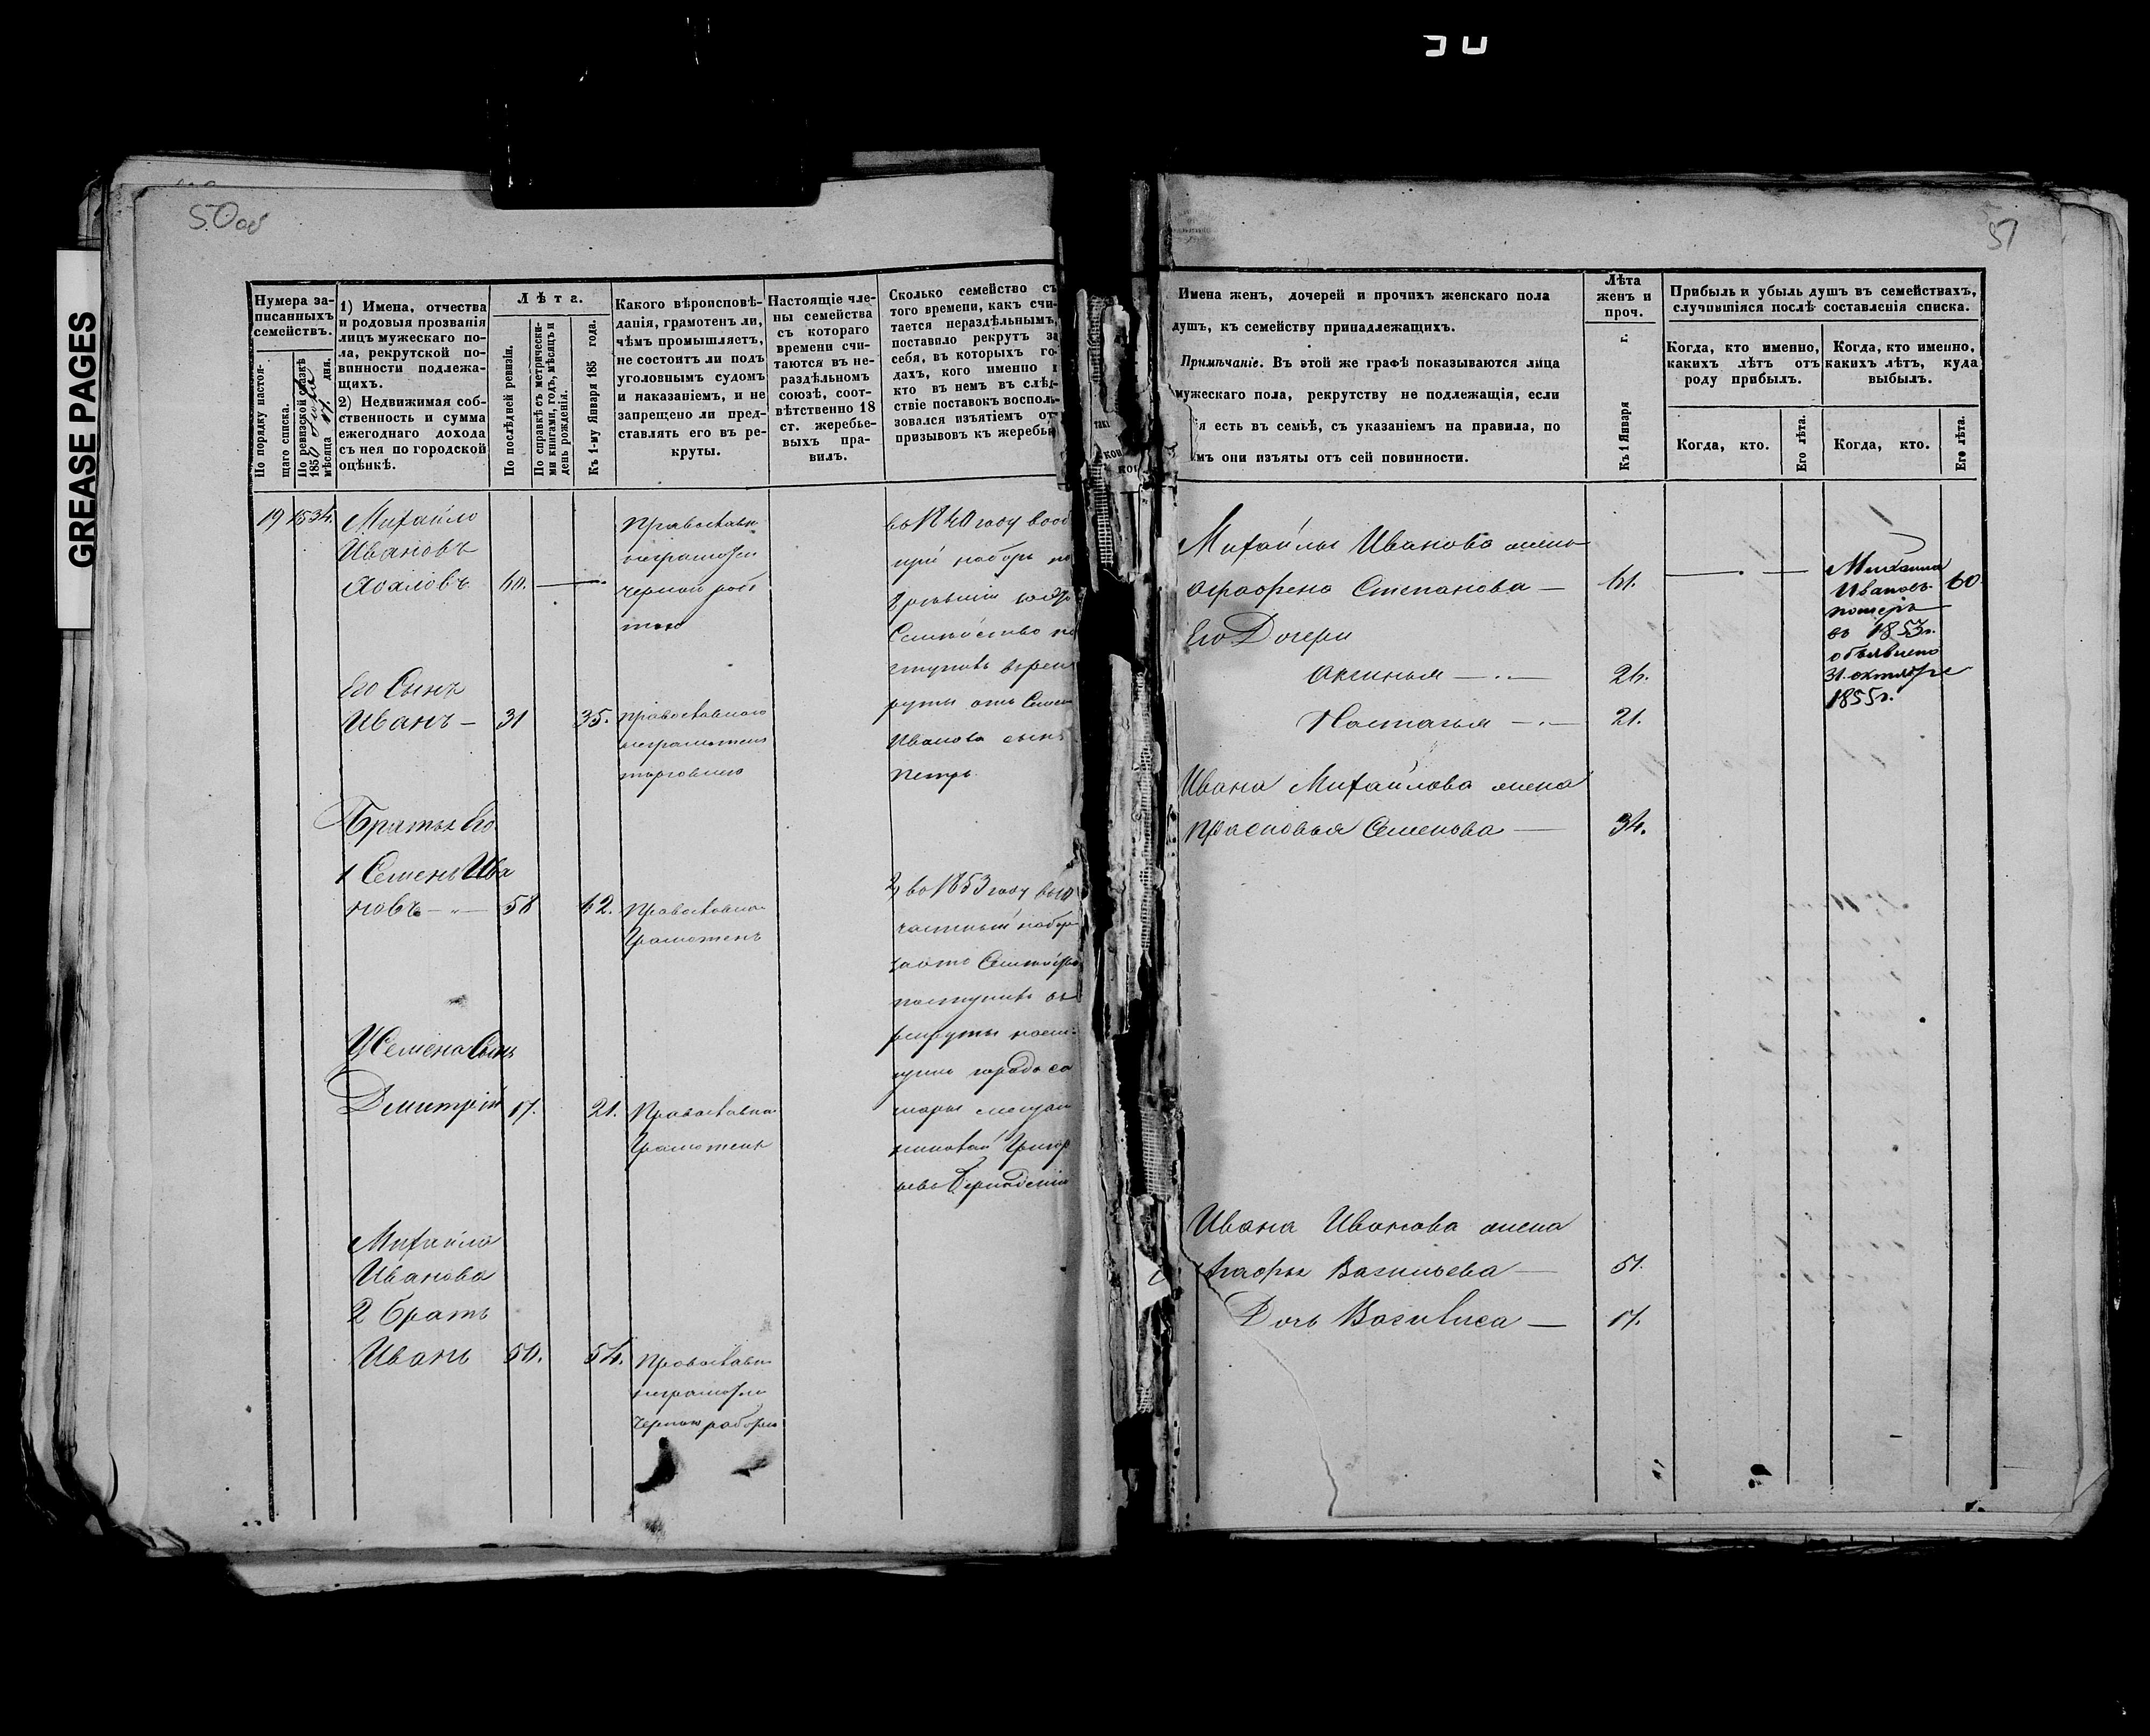 GREASE PAGES
50об
51
Нумера записанныхъ семействъ.
По порядку настоящаго списка.
По ревизской сказкѣ 1850
мѣсяца дня.
1) Имена, отчества
и родовыя прозванія
лицъ мужескаго по-
ла, рекрутской по-
винности подлежа-
щихъ.
2) Недвижимая соб-
ственность и сумма
ежегоднаго дохода
съ нея по городской
оцѣнкѣ.
Лѣта.
По послѣдней ревизіи.
По справкѣ съ метрически-
ми книгами, годъ, мѣсяцъ и
день рожденія.
Къ 1-му Января 185 года.
Какого вѣроисповѣ-
данія, грамотенъ ли,
чѣмъ промышляетъ,
не состоитъ ли подъ
уголовнымъ судомъ
и наказаніемъ, и не
запрещено ли пред-
ставлять его въ ре-
круты.
Настоящіе чле-
ны семейства
съ котораго
времени счи-
таются въ не-
раздѣльномъ
союзѣ, соот-
вѣтственно 18
ст. жеребье-
выхъ пра-
вилъ.
Сколько семейство съ
того времени, какъ счи-
тается нераздѣльнымъ,
поставило рекрутъ за
себя, въ которыхъ го-
дахъ, кого именно и
кто въ немъ въ слѣд-
ствіе поставокъ восполь-
зовался изъятіемъ отъ
призывовъ къ жеребью
19 1534. Михайло
Ивановъ
60.
Православн
неграмотн
черной рабо
тою
во 1840 году
при наборѣ
Семейство
рекруты отъ Семена
Иванова сынъ
Петръ
Его Сынъ
Иванъ — 31 35. Православнаго
неграмотенъ
торговлею
Братья Его
1 Семенъ Ива
новъ — 58 62. Православна
Грамотенъ
2) во 1853 году
частный наборъ
поступилъ въ
рекруты
города Са
мары мещан
Григор
У Семена Сынъ
Дмитрій 17. 21. Православна
Грамотенъ
Михайла
Иванова
2 братъ
Иванъ 50. 54. Православн
неграмотн
Черною работою
Имена женъ, дочерей и прочихъ женскаго пола
душъ, къ семейству принадлежащихъ.
Примѣчаніе. Въ этой же графѣ показываются лица
мужескаго пола, рекрутству не подлежащія, если
есть въ семьѣ, съ указаніемъ на правила, по
мъ они изъяты отъ сей повинности.
Лѣта
женъ и
проч.
Къ 1 Января г.
Прибыль и убыль душъ въ семействахъ,
случившіяся послѣ составленія списка.
Когда, кто именно,
какихъ лѣтъ отъ
роду прибылъ.
Когда, кто именно,
какихъ лѣтъ, куда
выбылъ.
Когда, кто.
Его лѣта.
Когда, кто.
Его лѣта.
Михайлы Иванова жена
Аграфена Степанова — 61.
Его Дочери
Аксинья — 26.
Настасья — 21.
Михайла
Ивановъ 60
померъ
въ 1853г.
объявлено
31. октября
1855г.
Ивана Михайлова жена
Прасковья Семенова — 34.
Ивана Иванова жена
Агафья Васильева — 51.
Дочь Василиса — 17.